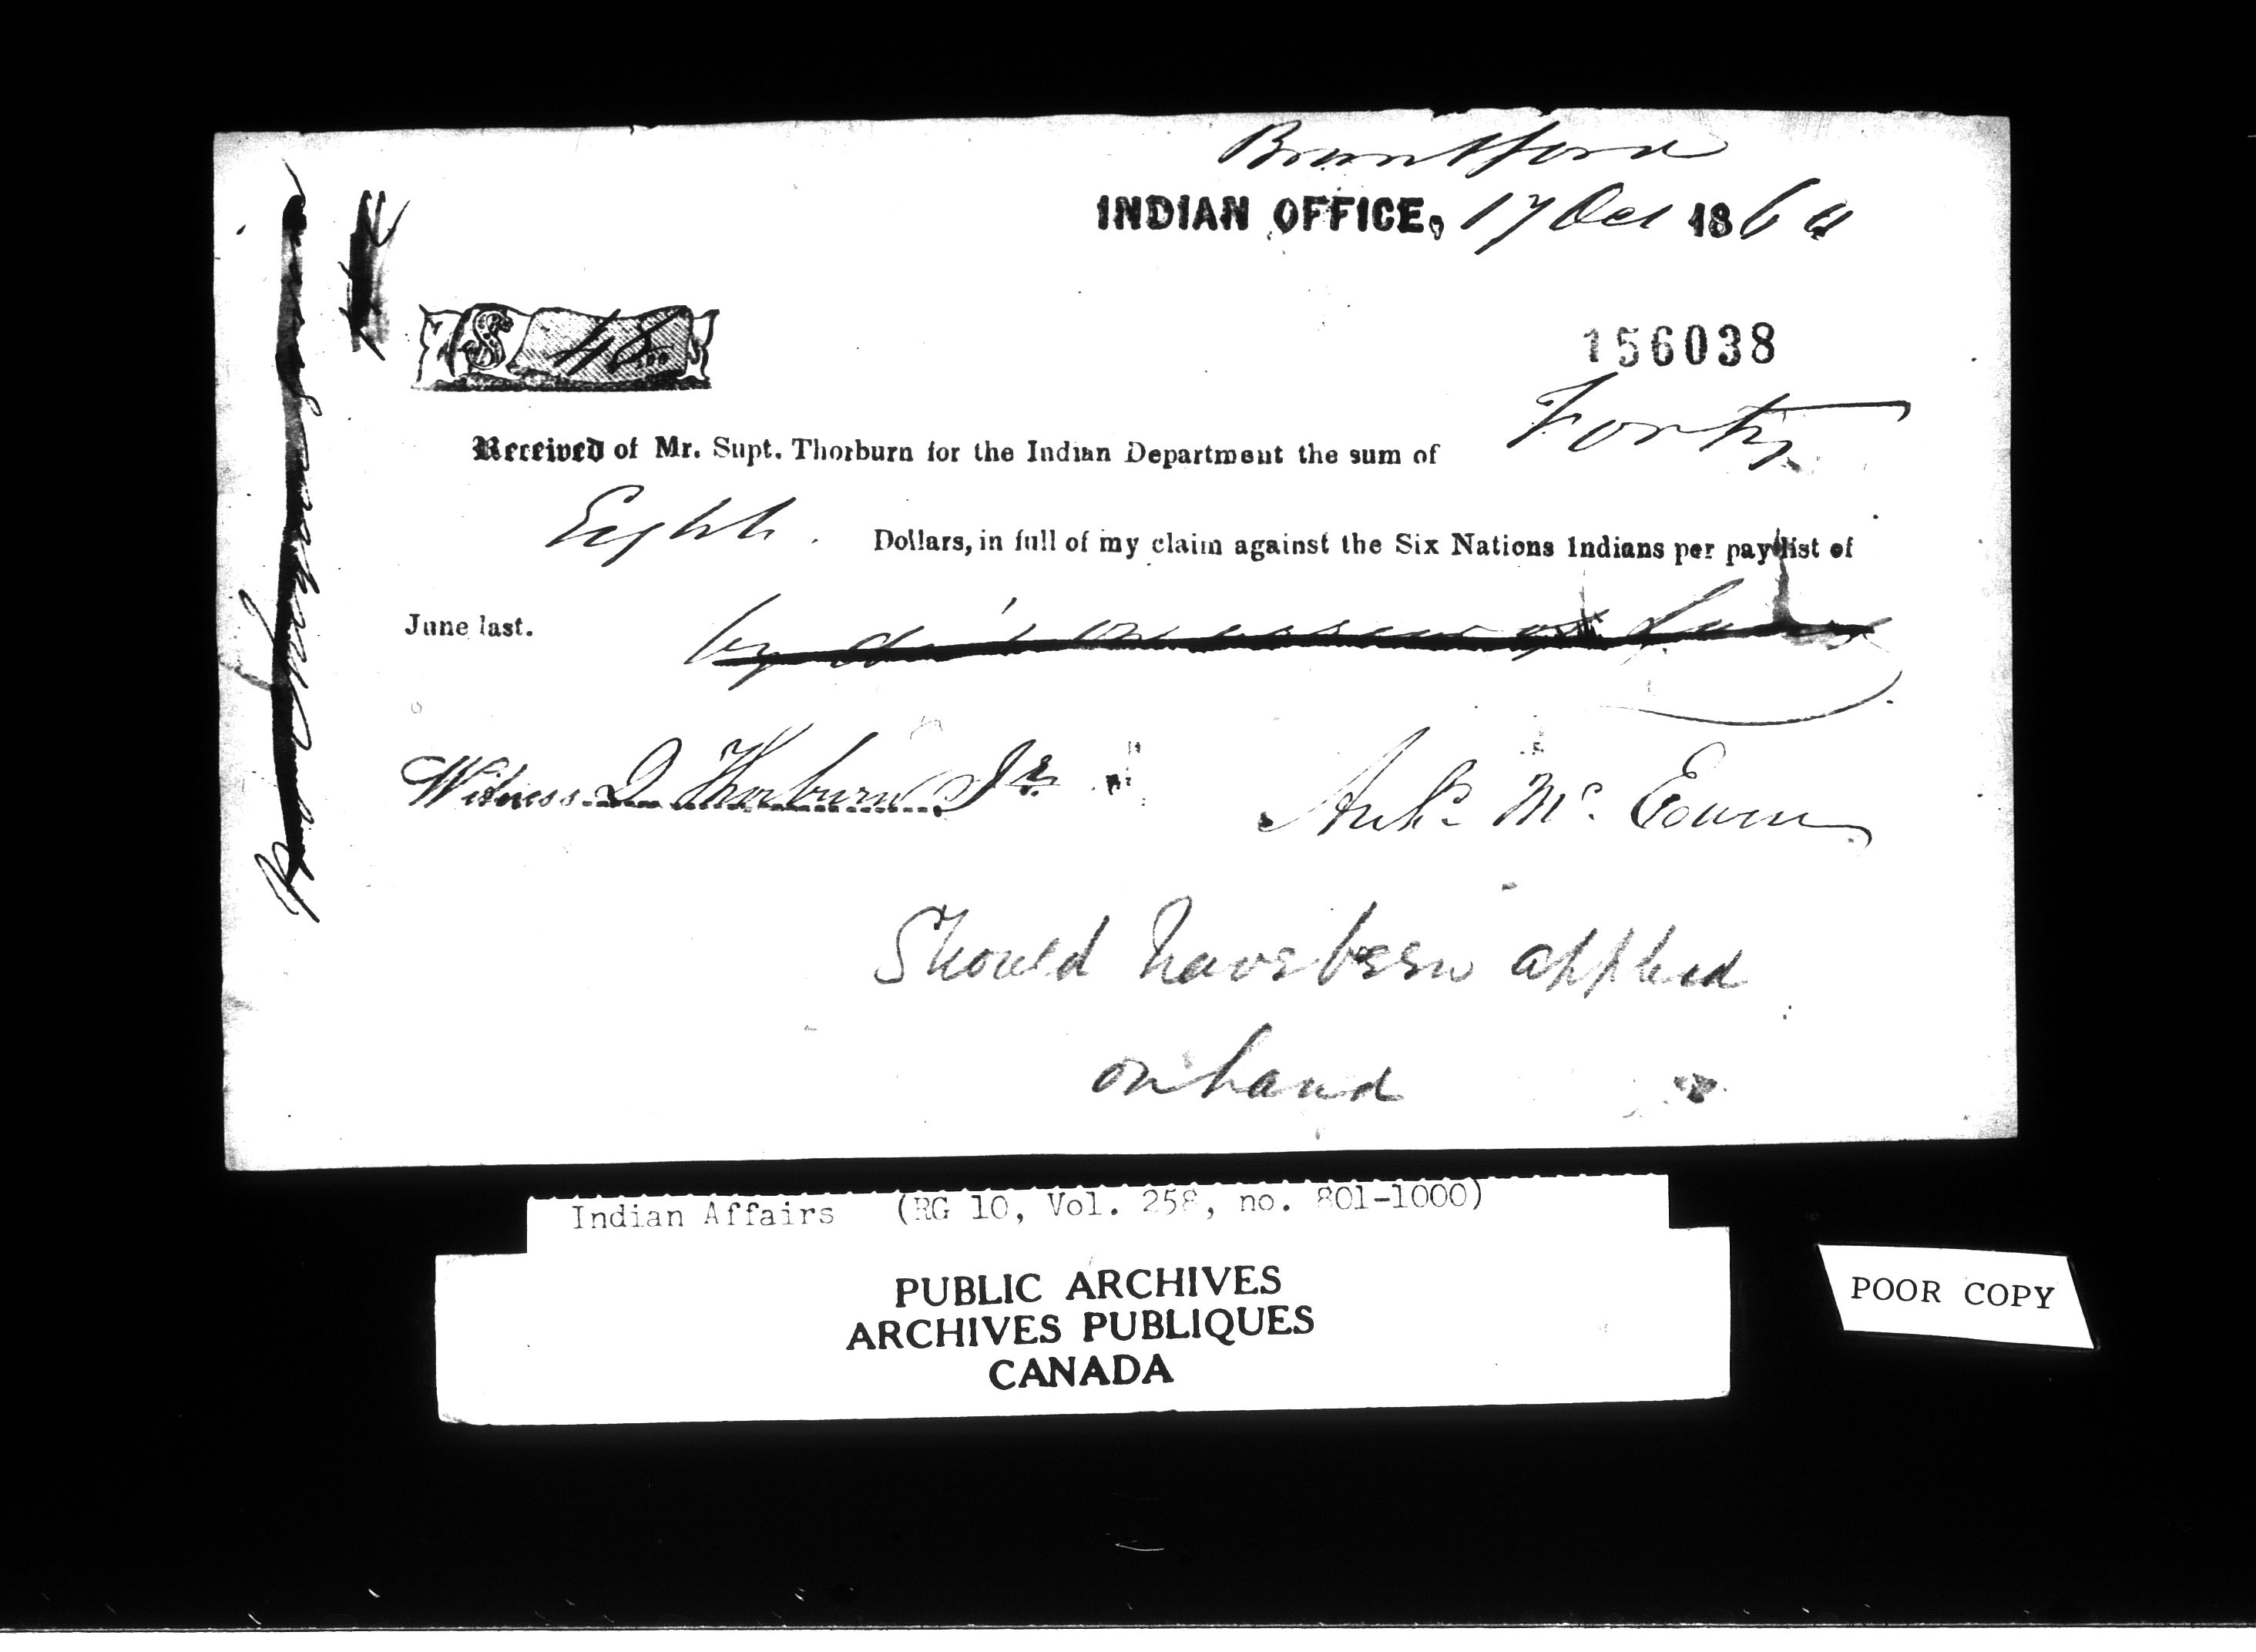 Brantford
INDIAN OFFICE, 17 Oct 1860
$ 48.00
156038
Received of Mr. Supt. Thorburn for the Indian Department the sum of Forty
Eight. Dollars, in full of my claim against the Six Nations Indians per pay list of
June last.
by
Witness D Thorburn Jr.
Mc Ewen
Should have been applied
on hand
Indian Affairs (RG 10, Vol. 258, no. 801-1000)
PUBLIC ARCHIVES
ARCHIVES PUBLIQUES
CANADA
POOR COPY